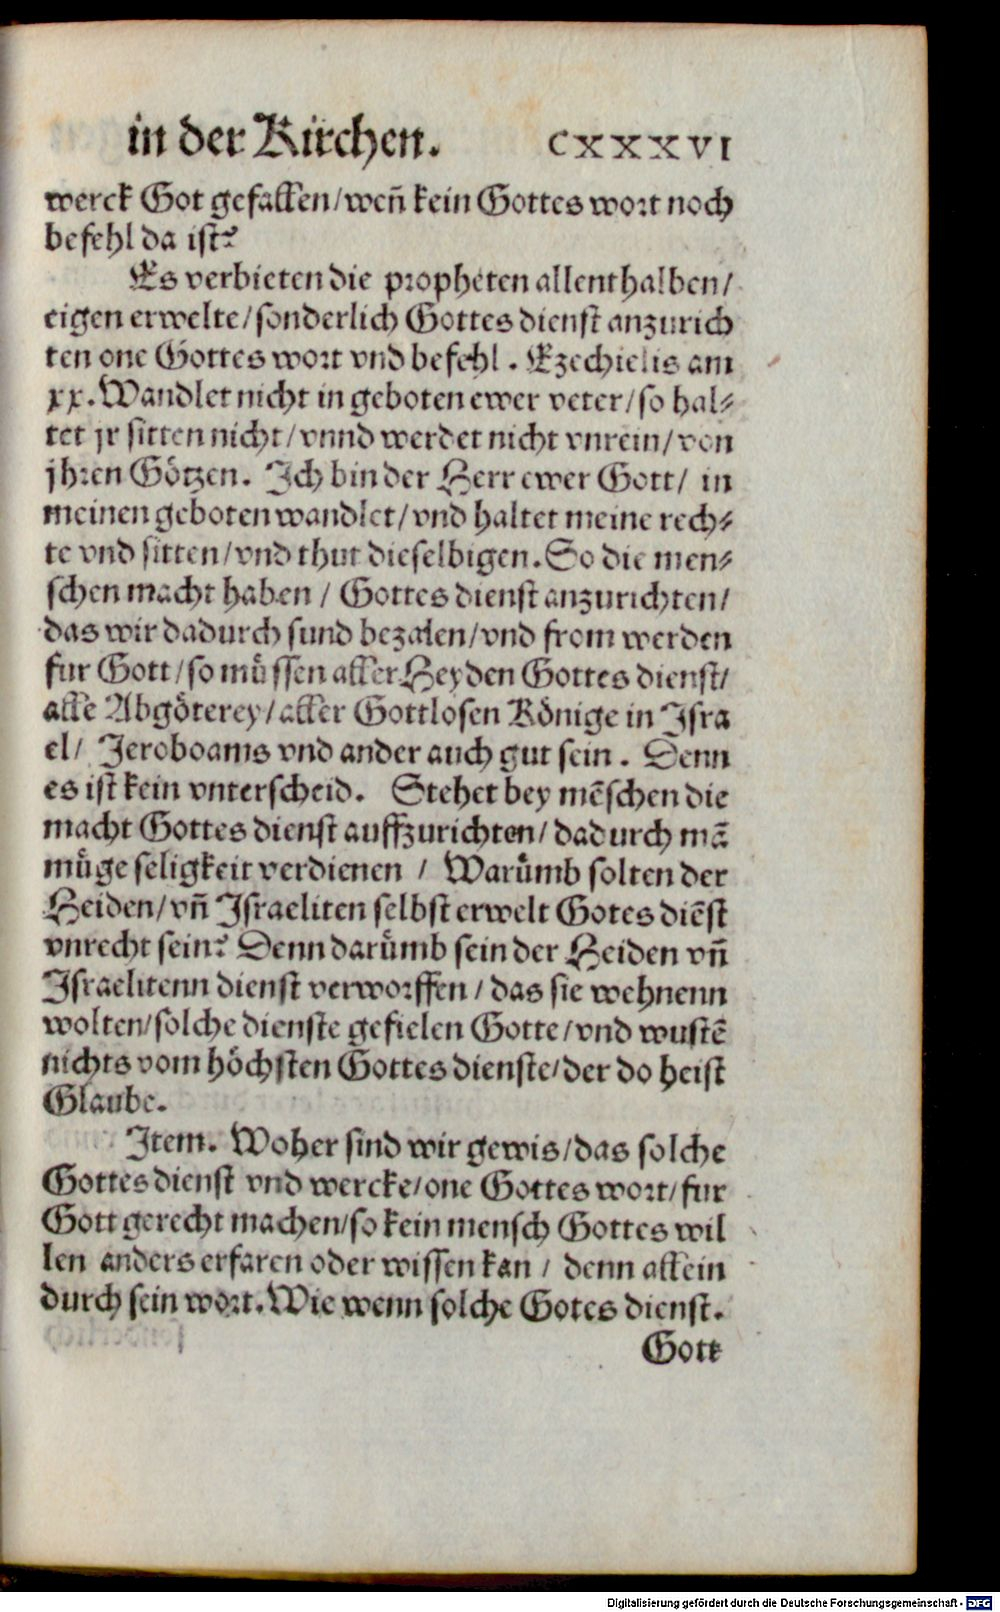 in der Kirchen. CXXXVI
werck Got gefallen/wen̄ kein Gottes wort noch
befehl da ist?
Es verbieten die propheten allenthalben/
eigen erwelte/sonderlich Gottes dienst anzurich
ten one Gottes wort vnd befehl. Ezechielis am
xx. Wandlet nicht in geboten ewer veter/so hal⸗
tet jr sitten nicht/vnnd werdet nicht vnrein/von
jhren Götzen. Ich bin der Herr ewer Gott/ in
meinen geboten wandlet/vnd haltet meine rech⸗
te vnd sitten/vnd thut dieselbigen. So die men⸗
schen macht haben / Gottes dienst anzurichten/
das wir dadurch sund bezalen/vnd from werden
fur Gott/so müssen aller Heyden Gottes dienst/
alle Abgöterey/aller Gottlosen Könige in Isra
el/ Jeroboams vnd ander auch gut sein. Denn
es ist kein vnterscheid. Stehet bey mēschen die
macht Gottes dienst auffzurichten/dadurch mā
müge seligkeit verdienen / Warümb solten der
Heiden/vn̄ Israeliten selbst erwelt Gotes diēst
vnrecht sein? Denn darümb sein der Heiden vn̄
Israelitenn dienst verworffen/das sie wehnenn
wolten/solche dienste gefielen Gotte/vnd wustē
nichts vom höchsten Gottes dienste/der do heist
Glaube.
Item. Woher sind wir gewis/das solche
Gottes dienst vnd wercke/one Gottes wort/fur
Gott gerecht machen/so kein mensch Gottes wil
len anders erfaren oder wissen kan / denn allein
durch sein wort. Wie wenn solche Gotes dienst.
Gott
Digitalisierung gefördert durch die Deutsche Forschungsgemeinschaft - DFG